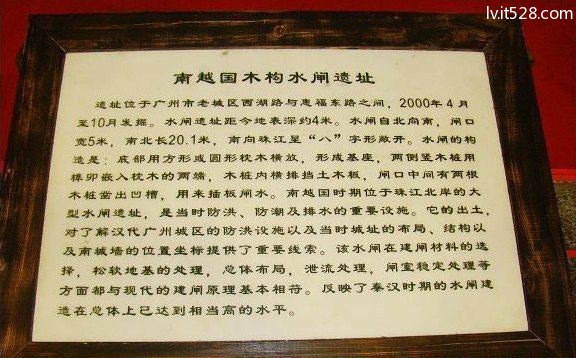 lv.it528.com
南越国木构水闸遗址
遗址位于广州市老城区西湖路与惠福东路之间，2000年4月
至10月发掘。水闸遗址距今地表深约4米。水闸自北向南，闸口
宽5米，南北长20.1米，南向珠江呈“八”字形敞开。水闸的构
造是：底部用方形或圆形枕木横放，形成基座，两侧竖木桩用
榫卯嵌入枕木的两端，木桩内横排挡土木板，闸口中间有两根
木桩凿出凹槽，用来插板闸水。南越国时期位于珠江北岸的大
型水闸遗址，是当时防洪、防潮及排水的重要设施。它的出土，
对了解汉代广州城区的防洪设施以及当时城址的布局、结构以
及南城墙的位置坐标提供了重要线索。该水闸在建闸材料的选
择，松软地基的处理，总体布局，泄流处理，闸室稳定处理等
方面都与现代的建闸原理基本相符。反映了秦汉时期的水闸建
造在总体上已达到相当高的水平。